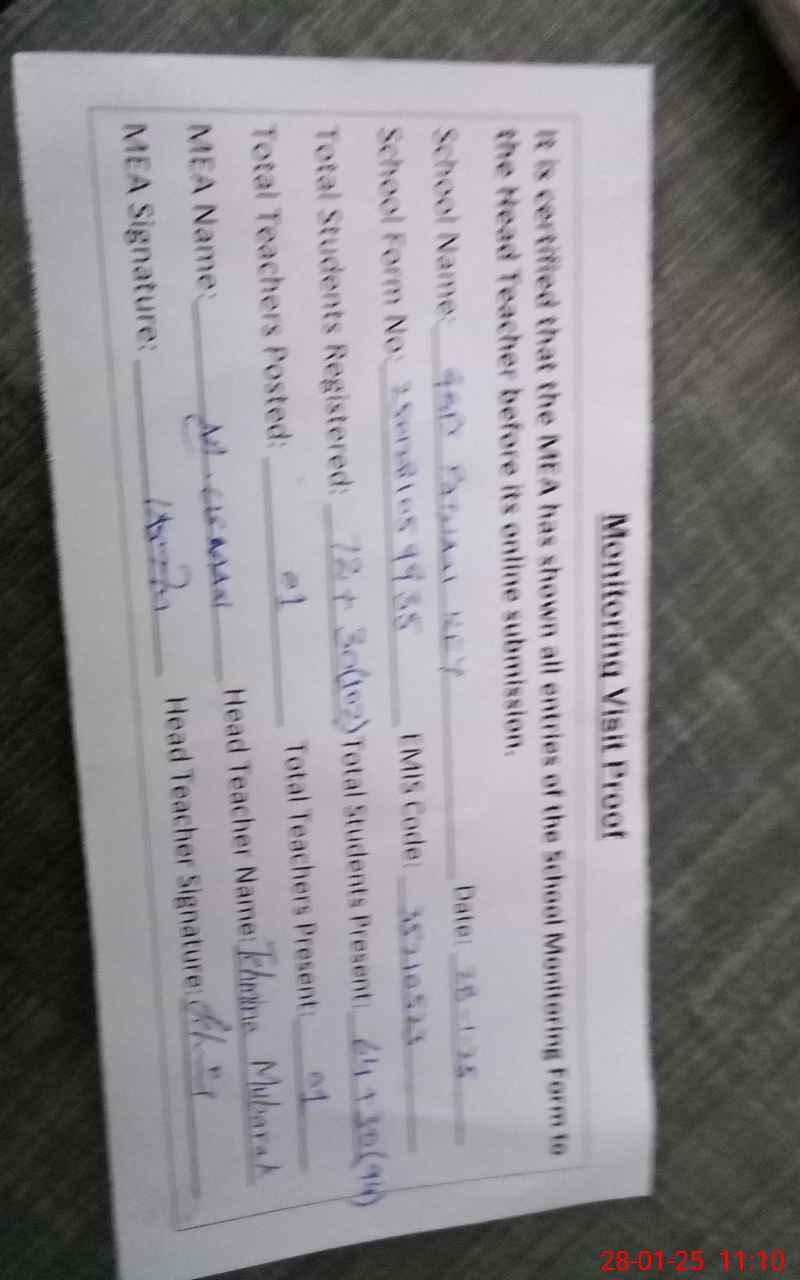 Monitoring Visit Proof
It is certified that the MEA has shown all entries of the School Monitoring Form to
the Head Teacher before its online submission.
School Name: Date: 28-1-25
School Form No: EMIS Code: 35210523
Total Students Registered: 72+30(102) Total Students Present: 64+30(94)
Total Teachers Posted: 01 Total Teachers Present: 01
MEA Name: M. Head Teacher Name: Tehmina Mubarak
MEA Signature: Head Teacher Signature:
28-01-25 11:10